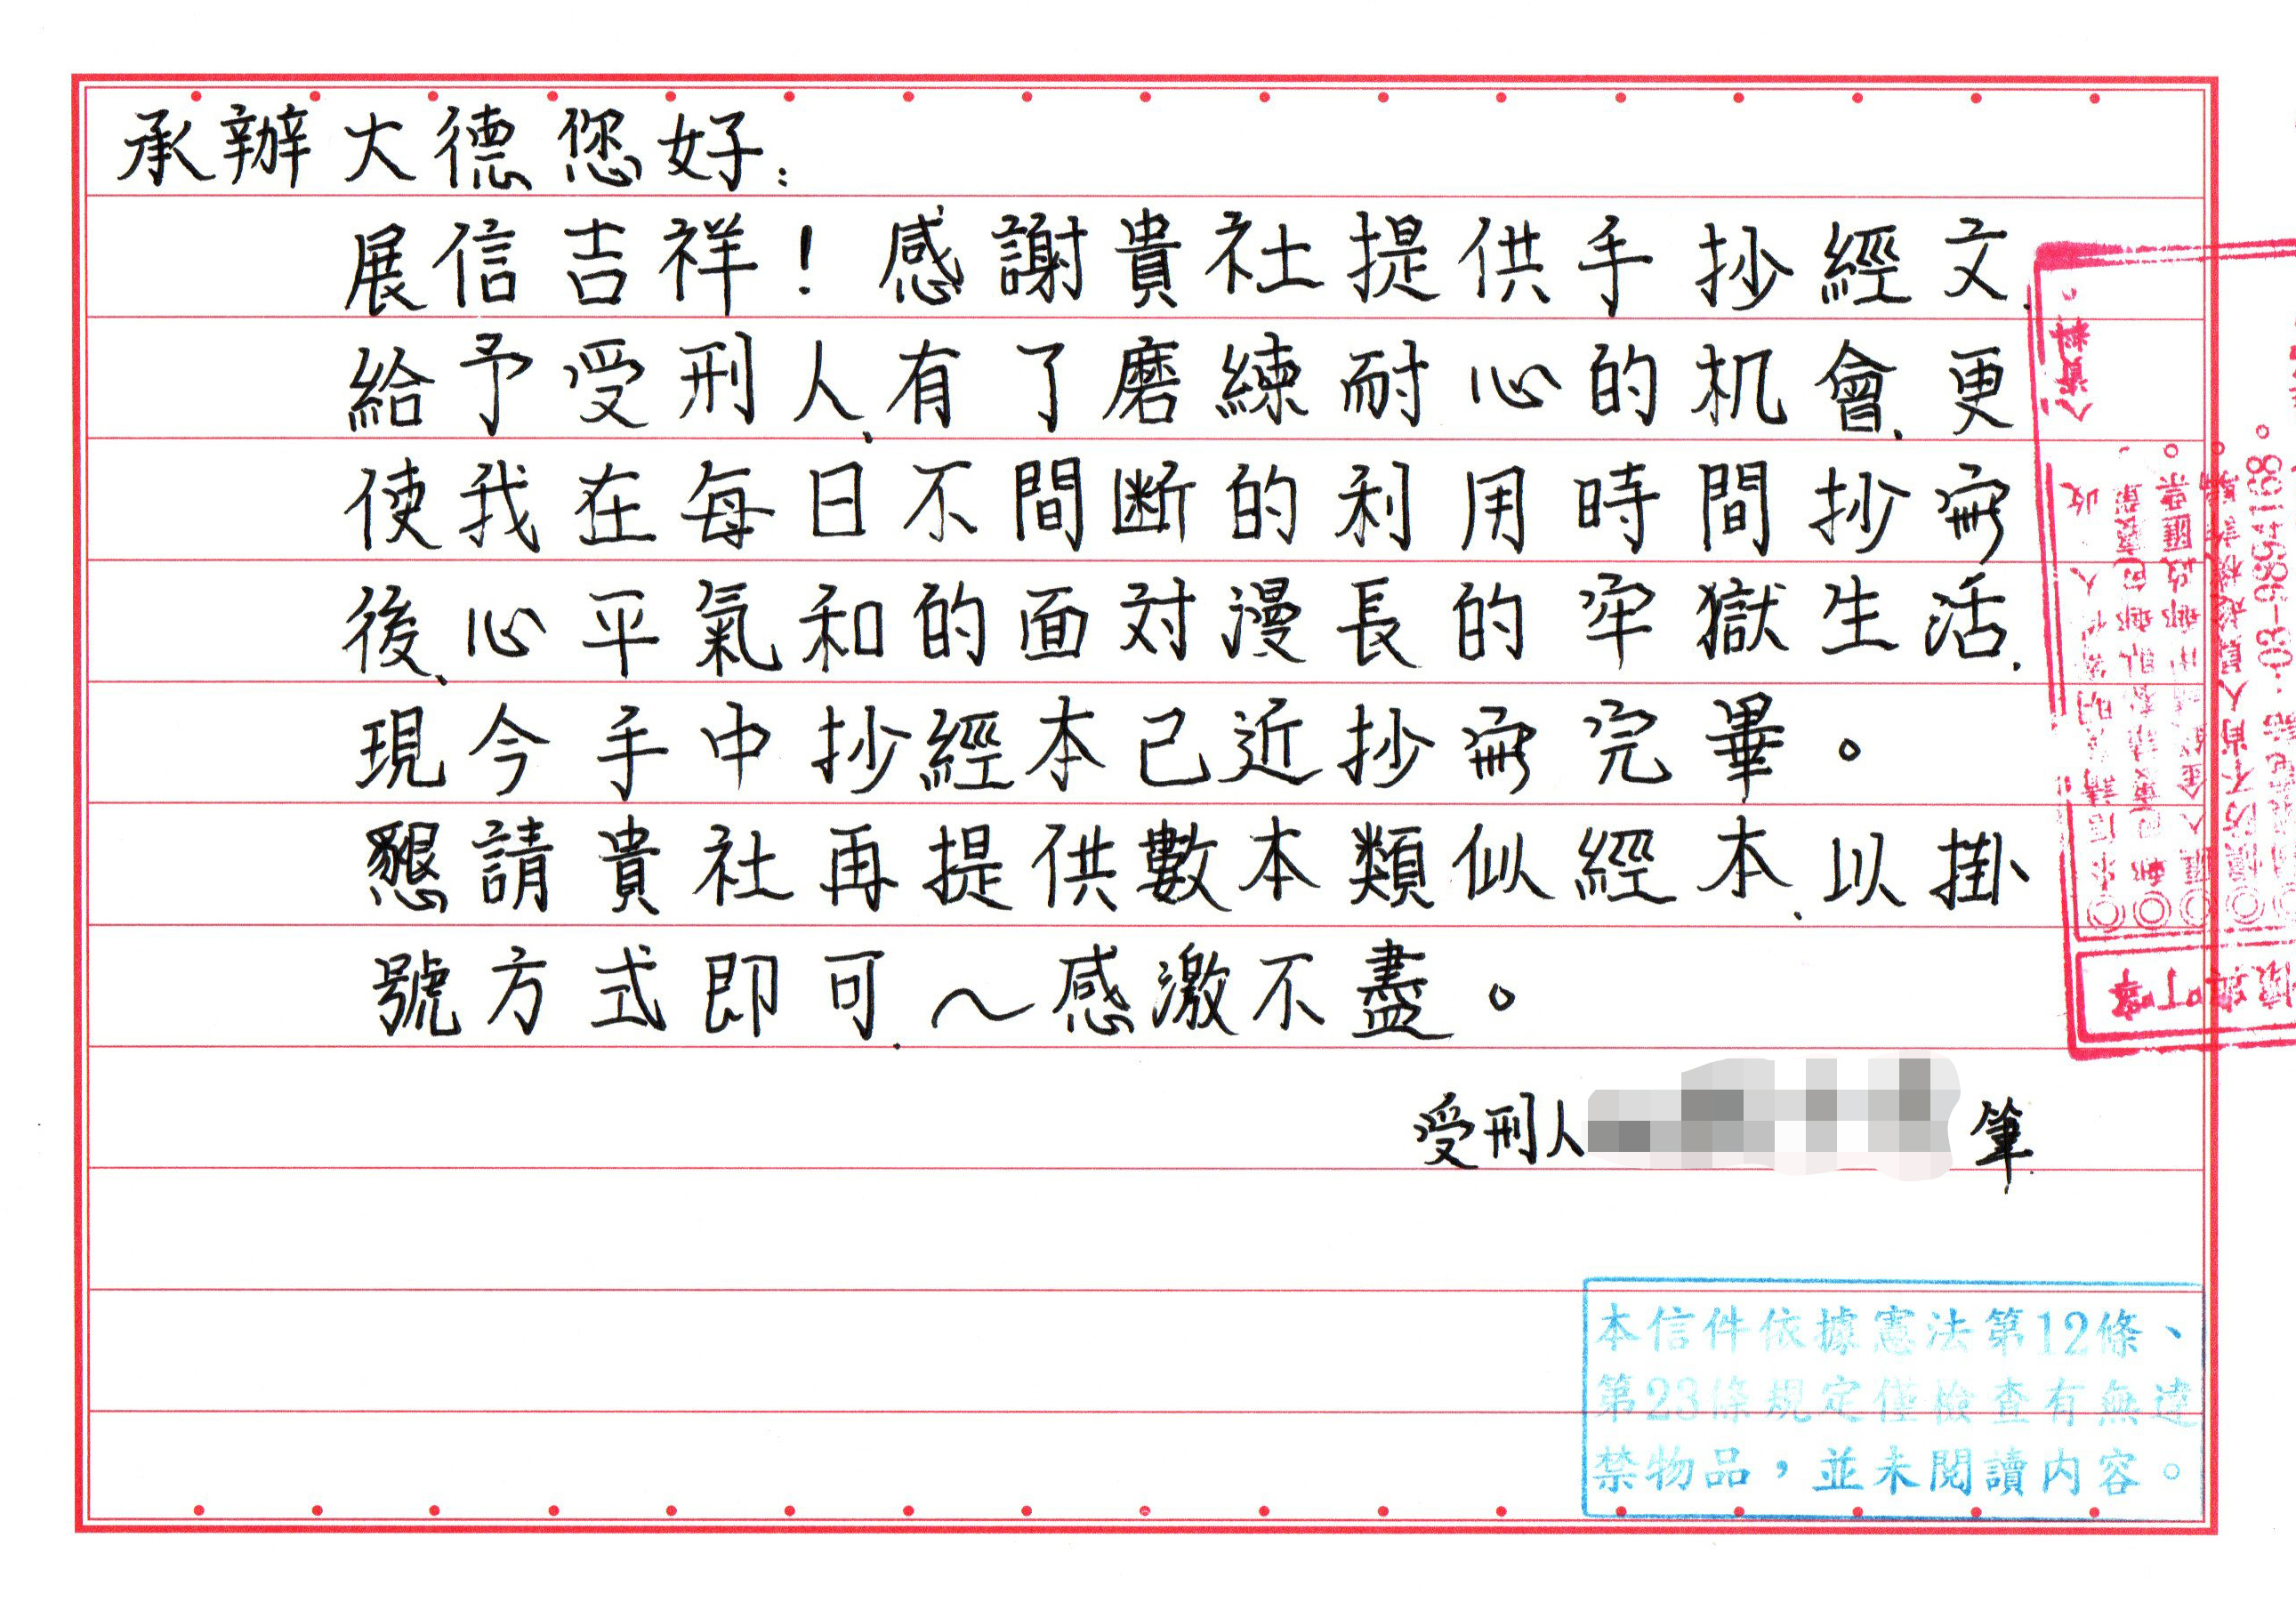 承辦大德您好:
展信吉祥!感謝貴社提供手抄經文,
給予受刑人,有了磨練耐心的机會,更
使我在每日不間断的利用時間抄寫
後,心平氣和的面对漫長的牢獄生活,
現今手中抄經本已近抄寫完畢。
懇請貴社再提供數本類似經本,以掛
號方式即可,~感激不盡。
受刑人
筆
本信件依據憲法第12條、
第23條規定僅檢查有無違
禁物品,並未閱讀內容。
03-9894168。